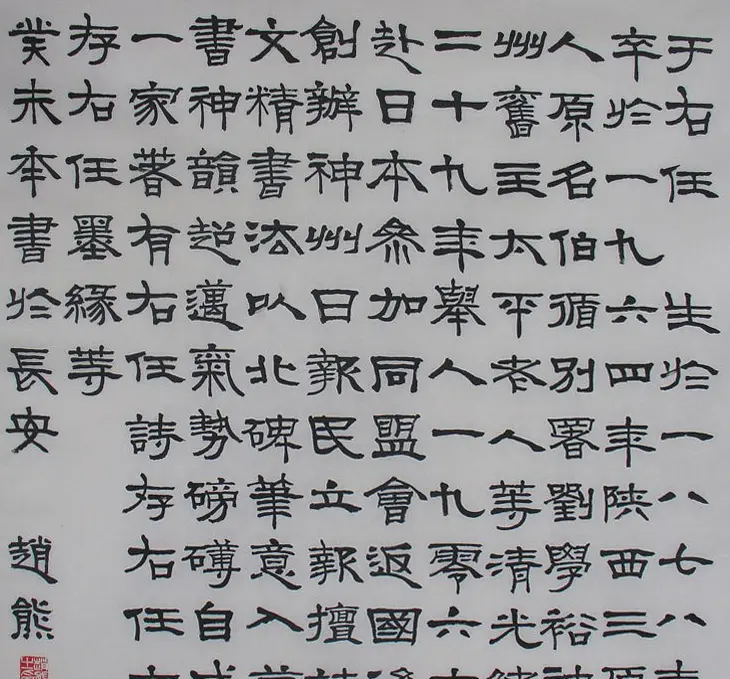 于右任 生於一八七八
卒於一九六四年陝西三原
人原名伯循別署劉學裕神
州舊主太平老人等清光緒
二十九年舉人一九零六年
赴日本參加同盟會返國後
創辦神州日報民立報擅詩
文精書法以北碑筆意入草
書神韻超邁氣勢磅礴自成
一家著有右任詩存右任文
存右任墨緣等
癸未本書於長安 趙熊